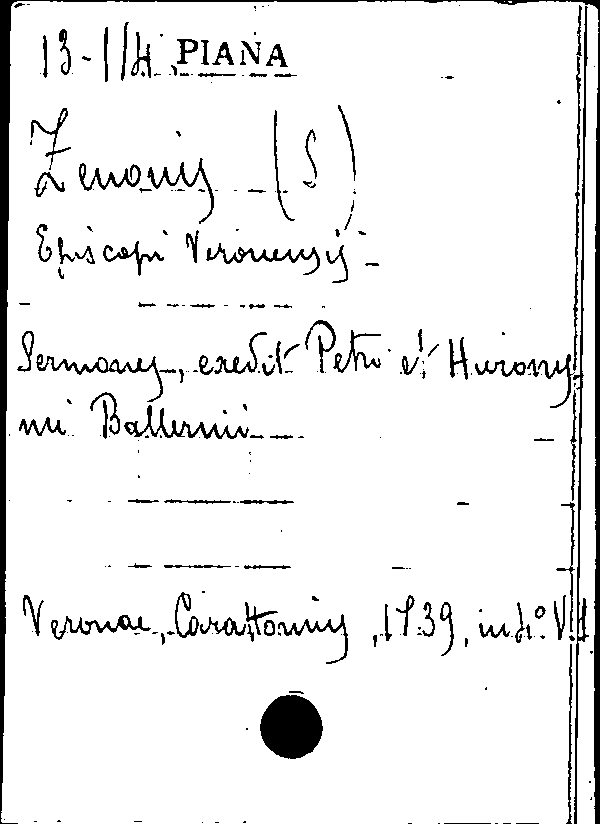 13-1/4 PIANA
Zenonis (S)
Episcopi Veronensis -
Sermones, exedit Petro et Hierony
mi Ballerini
Veronae, Carattonius, 1739, in 4º. V. 1